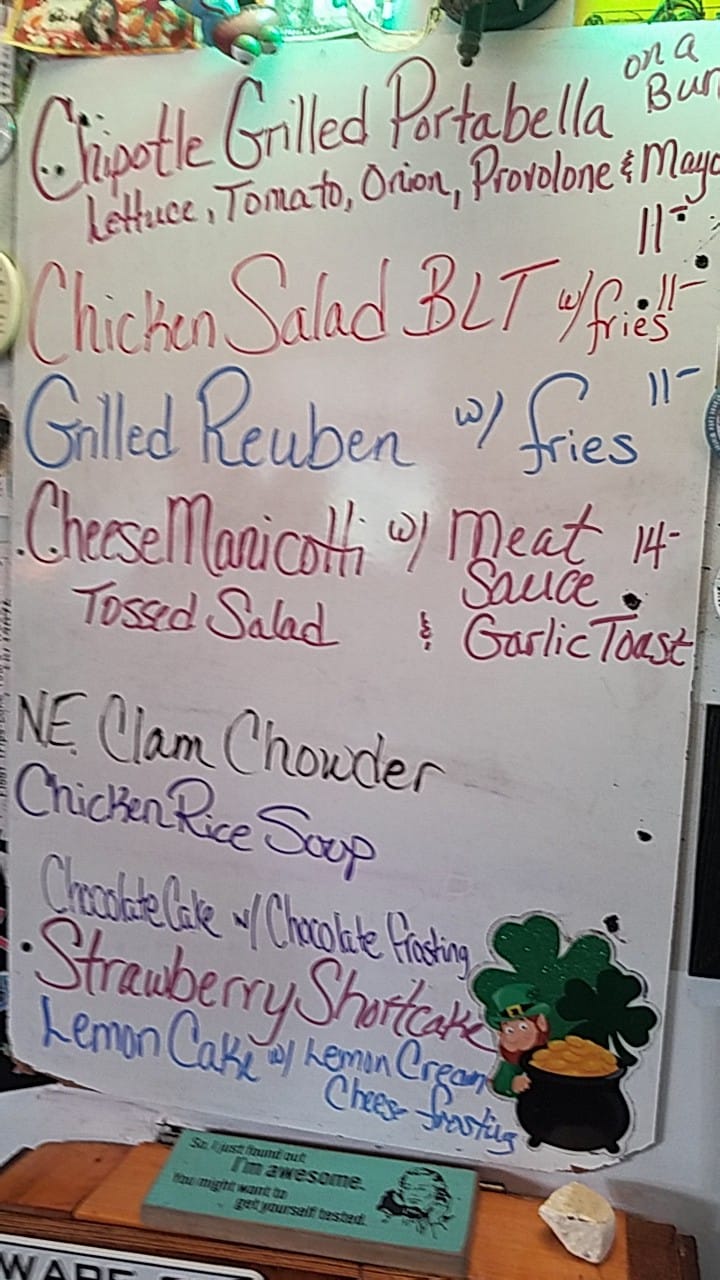 on a
Chipotle Grilled Portabella Bun
Lettuce, Tomato, Onion, Provolone & Mayo
11-
Chicken Salad BLT w/ fries 11-
Grilled Reuben w/ fries 11-
Cheese Manicotti w/ Meat 14-
Sauce
Tossed Salad & Garlic Toast
N.E. Clam Chowder
Chicken Rice Soup
Chocolate Cake w/ Chocolate frosting
Strawberry Shortcake
Lemon Cake w/ Lemon Cream
Cheese frosting
So, I just found out
I'm awesome.
You might want to
get yourself tested.